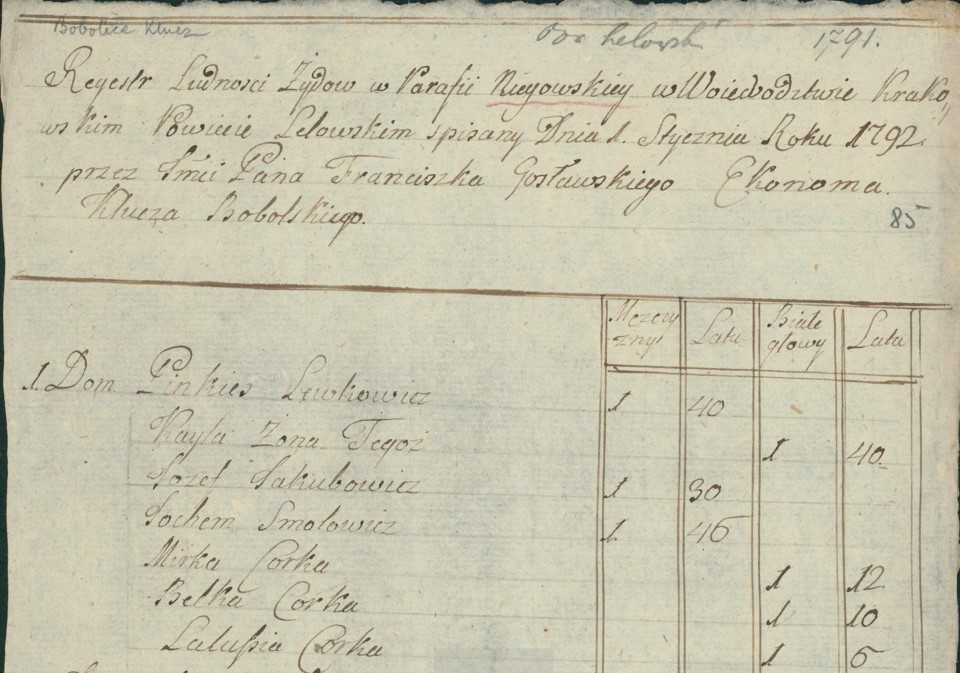 Bobolice Klucz
Pow Lelowski 1791.
Regestr Ludnosci Zydow w Parafii Niegowskiey w Woiewodztwie Krako
wskim Powiecie Lelowskim spisany Dnia 1. Stycznia Roku 1792.
przez Imci Pana Franciszka Gosławskiego Ekonoma.
Klucza Bobolskiego.
85
Męzczyzny Lata Białe głowy Lata
1. Dom Pinkies Lewkowicz 1 40
Kayla Zona Tegoż 1 40.
Jozef Jakubowicz 1 30
Jochem Smolowicz 1. 46
Mirka Corka 1 12
Belka Corka 1 10
Lalußia Corka 1 6